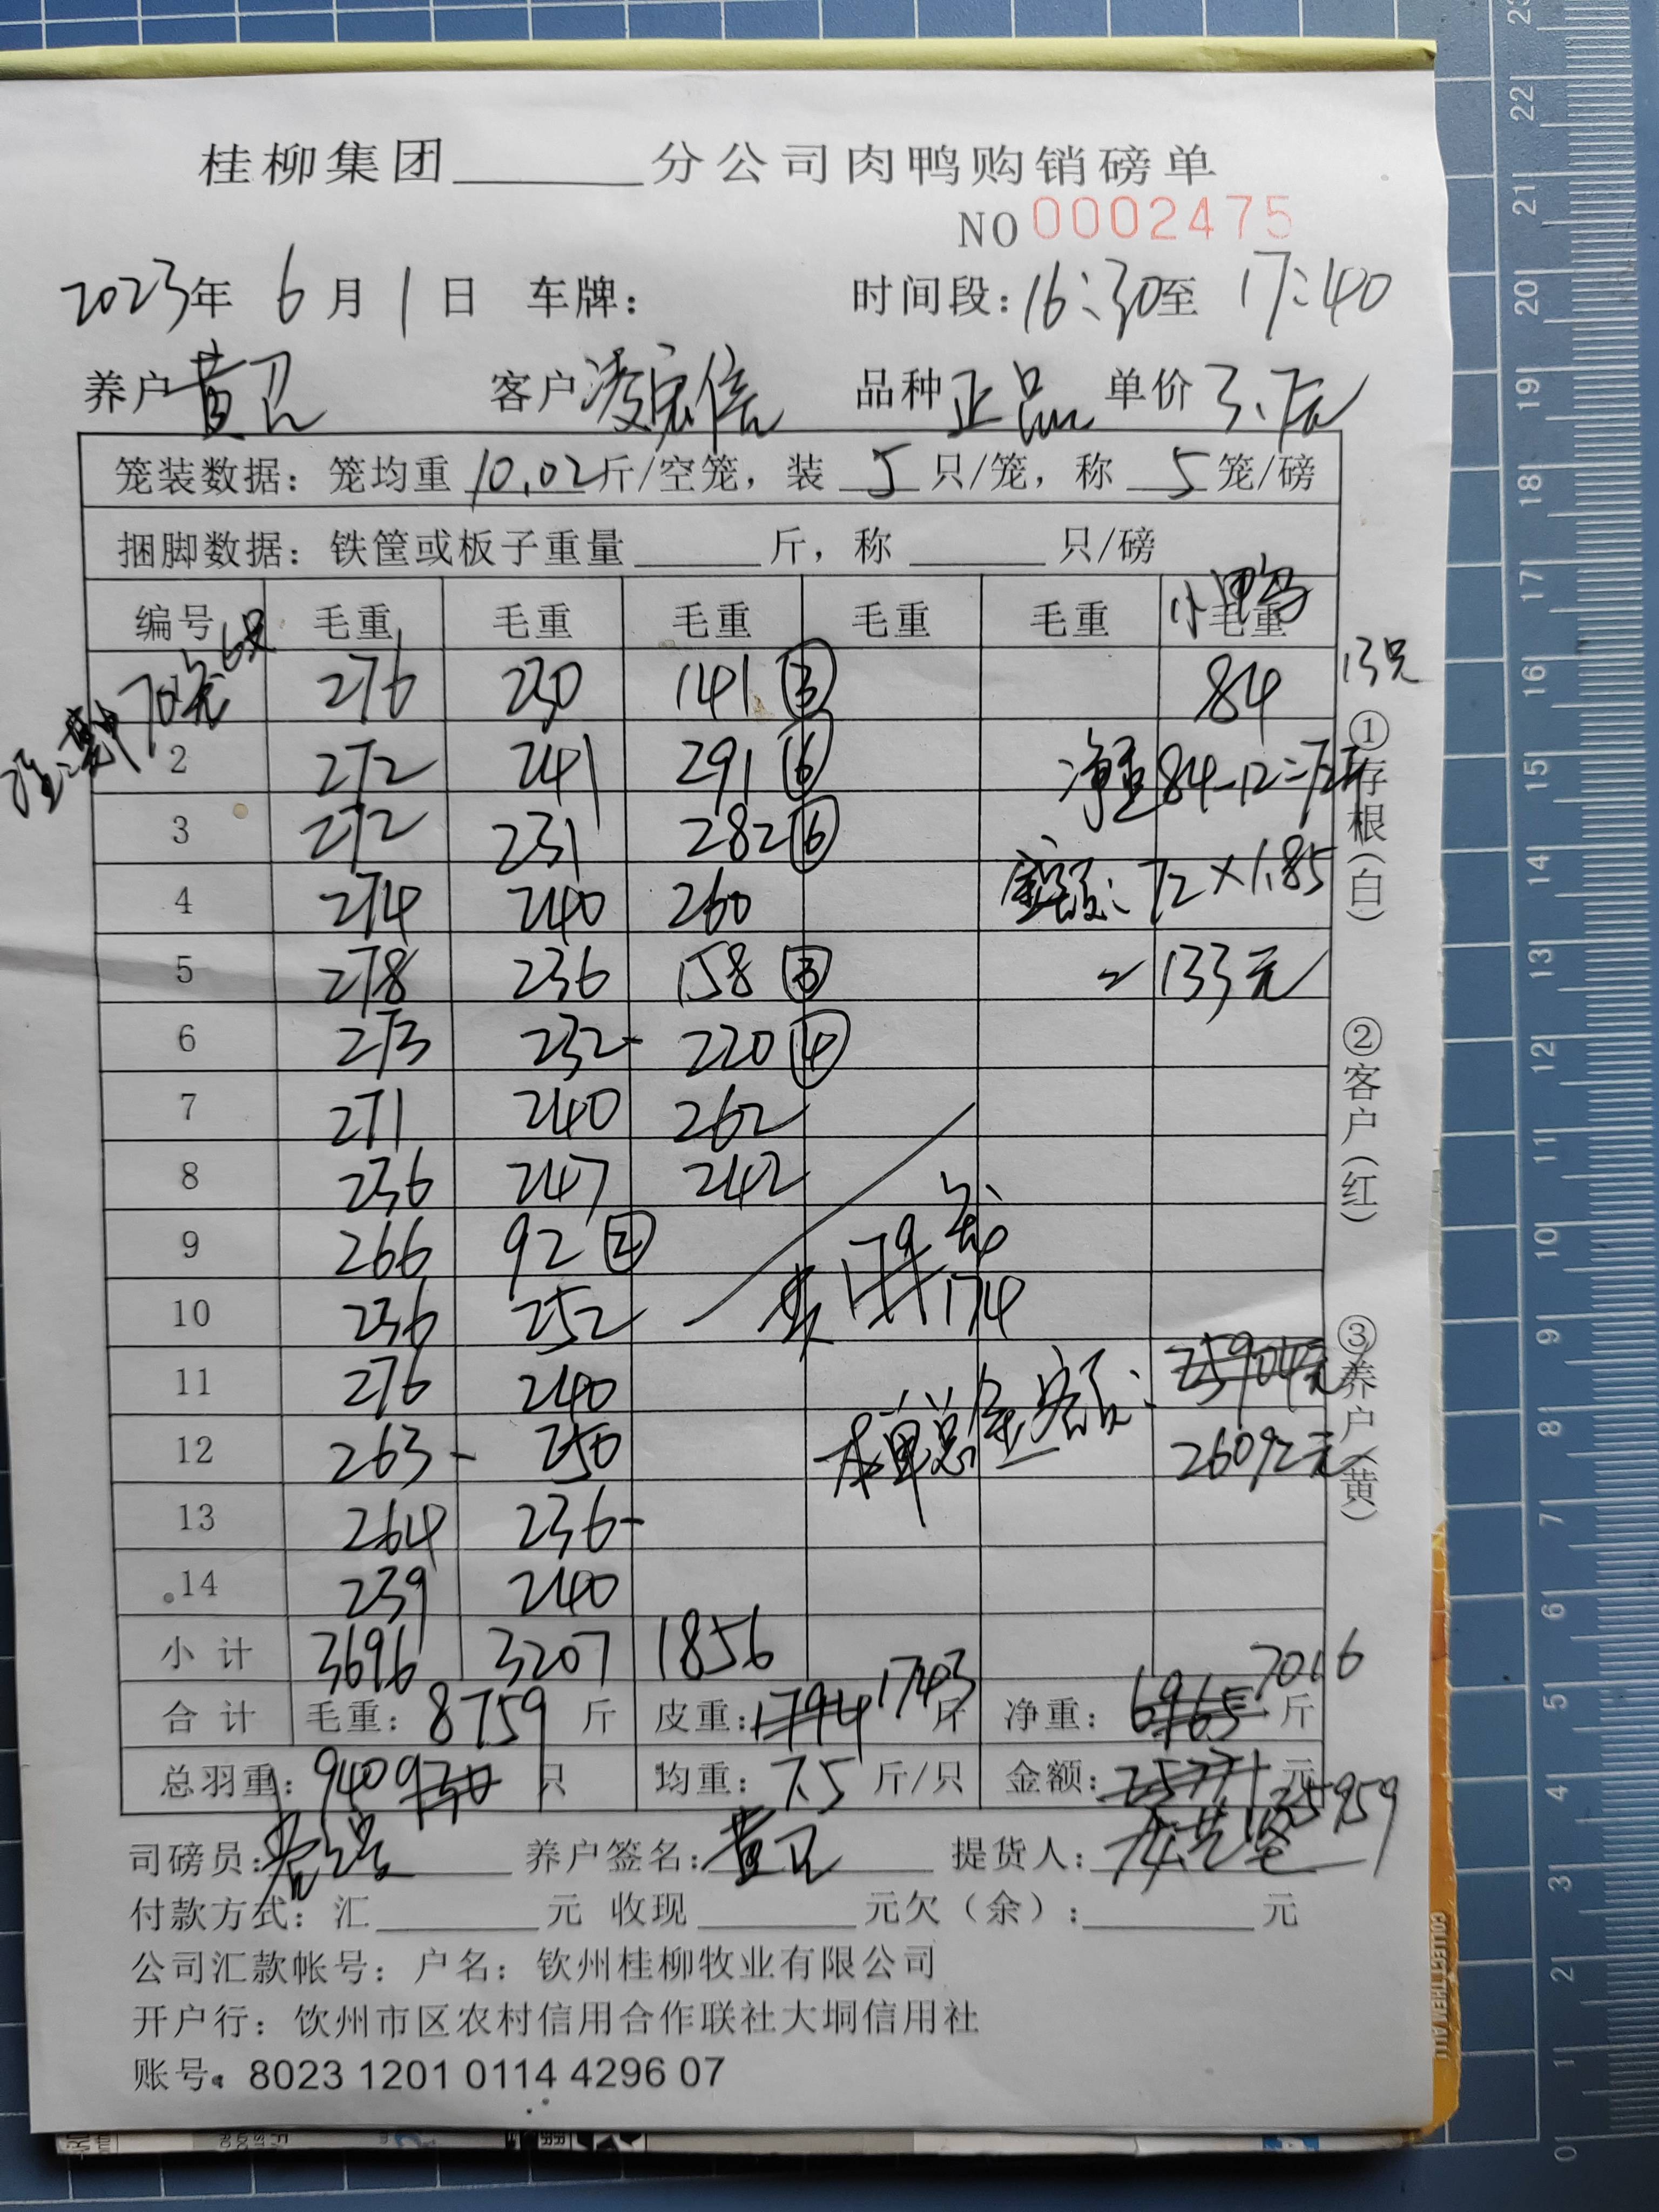 桂柳集团______分公司肉鸭购销磅单
NO 0002475
2023年 6 月 1 日 车牌: 时间段:16:30至 17:40
养户 黄卫 客户 凌宏信 品种 正品 单价 3.7元
笼装数据: 笼均重 10.02 斤/空笼, 装 5 只/笼, 称 5 笼/磅
捆脚数据: 铁筐或板子重量 ______ 斤, 称 ______ 只/磅
小鸭
编号 毛重 毛重 毛重 毛重 毛重 毛重
6只
276 230 141 ③ 84 13只
70斤
2 272 241 291 ⑥ 净重84-12=72斤
3 272 231 282 ⑥
4 274 240 260 金额: 72×1.85
5 278 236 158 ③ =133元
6 273 232- 220 ④
7 271 240 262
8 236 247 242
9 266 92 ② 179
10 236 252 174
11 276 240 本单总金额: 25904元
12 263- 250 26092元
13 264 236-
14 239 240
小 计 3696 3207 1856
合 计 毛重: 8759 斤 皮重: 1794 1743 斤 净重: 6965 7016 斤
总羽重: 940 930 只 均重: 7.5 斤/只 金额: 25771 元 25959
司磅员: 养户签名: 黄卫 提货人:
付款方式: 汇______元 收现______元欠(余):______元
公司汇款帐号: 户名: 钦州桂柳牧业有限公司
开户行: 钦州市区农村信用合作联社大垌信用社
账号: 8023 1201 0114 4296 07
①存根(白)
②客户(红)
③养户(黄)
COLLECT THEM ALL!